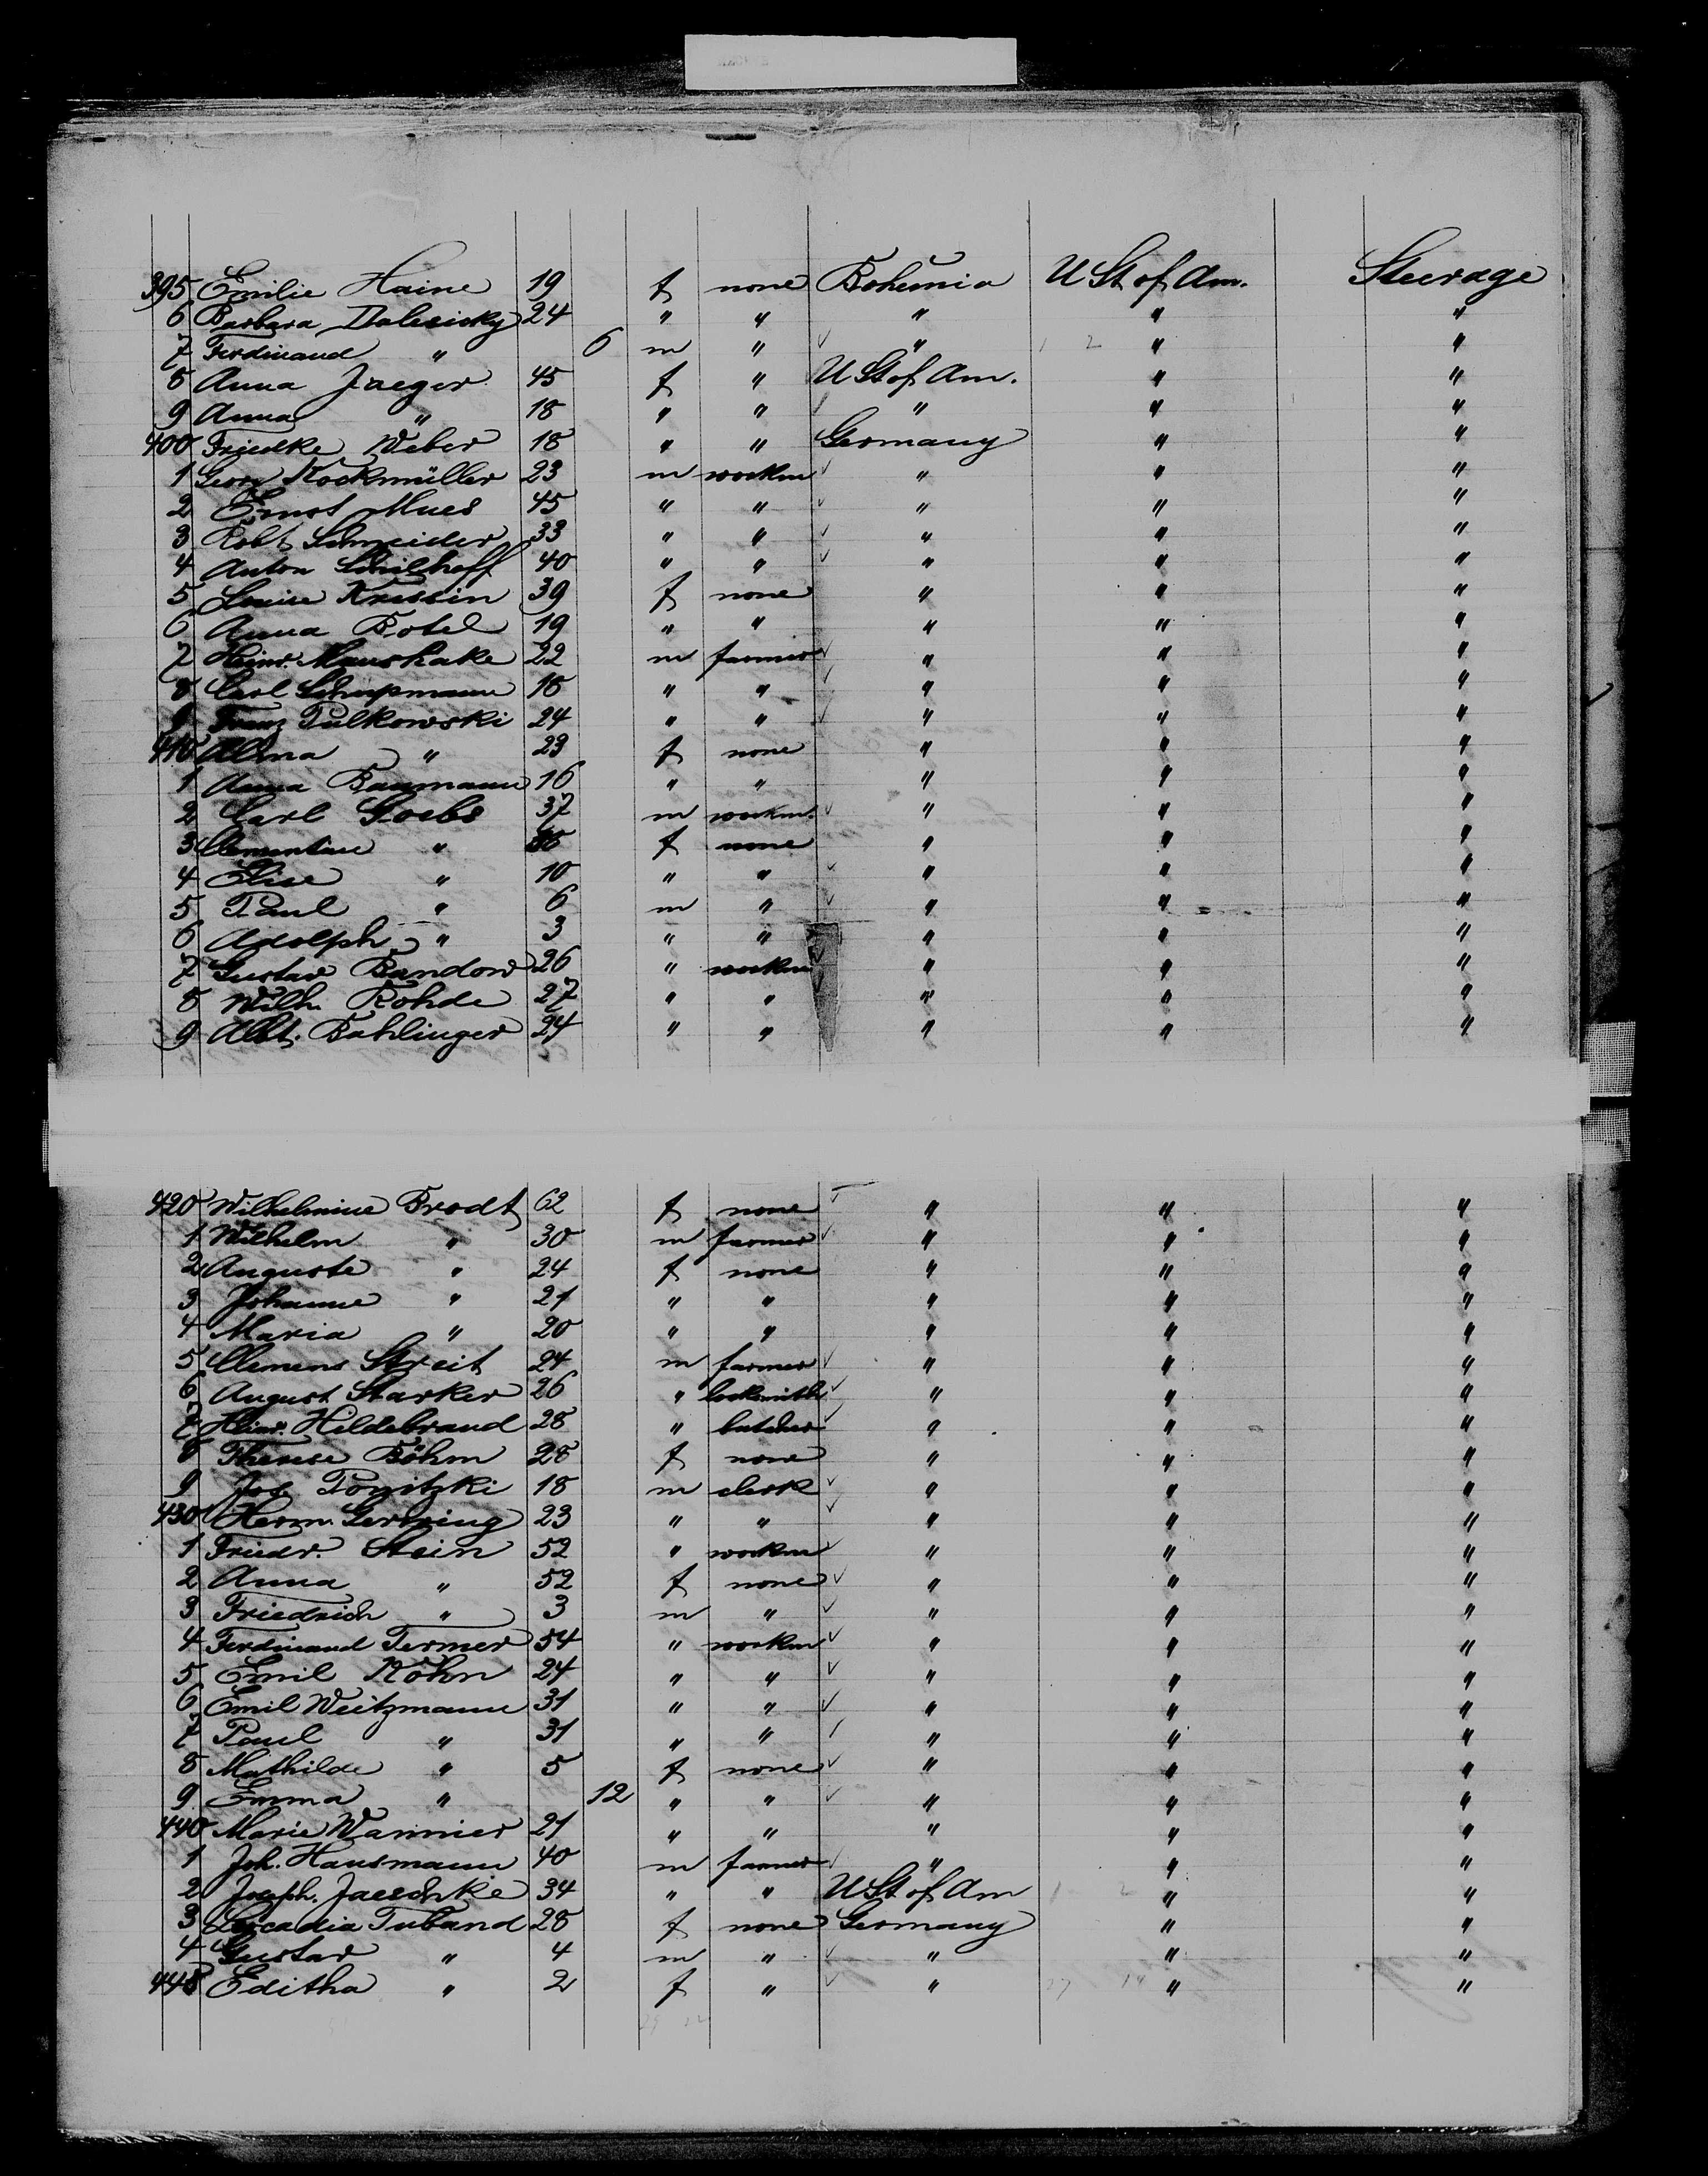 395 Emilie Haine 19 f none Bohemia U St of Am. Steerage
6 Barbara Dolesicky 24 " " " " "
7 Ferdinand " 6 m " " " "
8 Anna Jaeger 45 f " U St of Am. " "
9 Anna " 18 " " " " "
400 Friedke Weber 18 " " Germany " "
1 Georg Kockmüller 23 m workm " " "
2 Ernst Mues 45 " " " " "
3 Robt Schneider 33 " " " " "
4 Anton Schilhoff 40 " " " " "
5 Louise Kressin 39 f none " " "
6 Anna Botel 19 " " " " "
7 Heinr. Maushake 22 m farmer " " "
8 Carl Schupmann 18 " " " " "
9 Franz Pulkowski 24 " " " " "
410 Alma " 23 f none " " "
1 Anna Baumann 16 " " " " "
2 Carl Goebs 37 m workm. " " "
3 Clementine " f none " " "
4 Elise " 10 " " " " "
5 Paul " 6 m " " " "
6 Adolph " 3 " " " " "
7 Gustav Bandow 26 " workm " " "
8 Wilh. Rohde 27 " " " " "
9 Albt. Bahlinger 24 " " " " "
420 Wilhelmine Brodt 62 f none " " "
1 Wilhelm " 30 m farmer " " "
2 Auguste " 24 f none " " "
3 Johanne " 21 " " " " "
4 Maria " 20 " " " " "
5 Clemens Streit 24 m farmer " " "
6 August Starker 26 " locksmith " " "
7 Heinr. Hildebrand 28 " butcher " " "
8 Therese Böhm 28 f none " " "
9 Jos. Ponitzki 18 m clerk " " "
430 Herm. Gerbing 23 " " " " "
1 Friedr. Stein 52 " workm " " "
2 Anna " 52 f none " " "
3 Friedrich " 3 m " " " "
4 Ferdinand Termer 54 " workm " " "
5 Emil Köhn 24 " " " " "
6 Emil Weitzmann 31 " " " " "
7 Paul " 31 " " " " "
8 Mathilde " 5 f none " " "
9 Emma " 12 " " " " "
440 Marie Wannier 21 " " " " "
1 Joh. Hausmann 40 m farmer " " "
2 Joseph. Jaeschke 34 " " U St of Am " "
3 Leocadia Tuband 28 f none Germany " "
4 Gustav " 4 m " " " "
445 Editha " 2 f " " " "